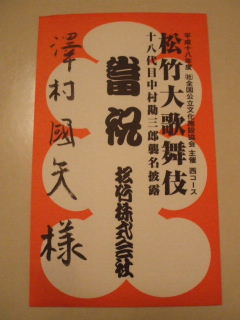 平成十八年度 ㈳全国公立文化施設協会 主催 西コース
松竹大歌舞伎
十八代目中村勘三郎襲名披露
當祝
松竹株式会社
澤村國矢様